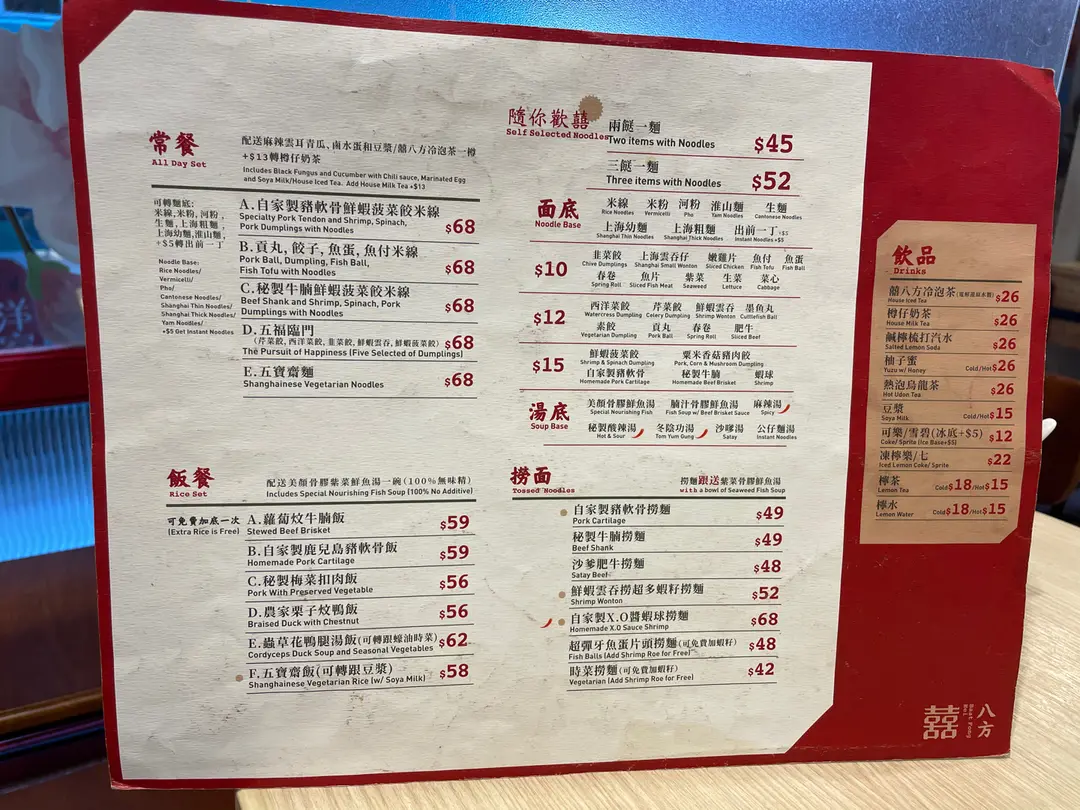 常餐
All Day Set
配送麻辣雲耳青瓜,鹵水蛋和豆漿/囍八方冷泡茶一樽
+$13轉樽仔奶茶
Includes Black Fungus and Cucumber with Chili sauce, Marinated Egg
and Soya Milk/House Iced Tea. Add House Milk Tea +$13
可轉麵底:
米線,米粉,河粉,
生麵,上海粗麵,
上海幼麵,淮山麵,
+$5轉出前一丁
Noodle Base:
Rice Noodles/
Vermicelli/
Pho/
Cantonese Noodles/
Shanghai Thin Noodles/
Shanghai Thick Noodles/
Yam Noodles/
+$5 Get Instant Noodles
A.自家製豬軟骨鮮蝦菠菜餃米線
Specialty Pork Tendon and Shrimp, Spinach,
Pork Dumplings with Noodles
$68
B.貢丸,餃子,魚蛋,魚付米線
Pork Ball, Dumpling, Fish Ball,
Fish Tofu with Noodles
$68
C.秘製牛腩鮮蝦菠菜餃米線
Beef Shank and Shrimp, Spinach, Pork
Dumplings with Noodles
$68
D.五福臨門
(芹菜餃,西洋菜餃,韭菜餃,鮮蝦雲吞,鮮蝦菠菜餃)
The Pursuit of Happiness (Five Selected of Dumplings)
$68
E.五寶齋麵
Shanghainese Vegetarian Noodles
$68
隨你歡囍
Self Selected Noodles
兩餸一麵
Two items with Noodles
$45
三餸一麵
Three items with Noodles
$52
面底
Noodle Base
米線 米粉 河粉 淮山麵 生麵
Rice Noodles Vermicelli Pho Yam Noodles Cantonese Noodles
上海幼麵 上海粗麵 出前一丁+$5
Shanghai Thin Noodles Shanghai Thick Noodles Instant Noodles +$5
$10
韭菜餃 上海雲吞仔 嫩雞片 魚付 魚蛋
Chive Dumplings Shanghai Small Wonton Sliced Chicken Fish Tofu Fish Ball
春卷 魚片 紫菜 生菜 菜心
Spring Roll Sliced Fish Meat Seaweed Lettuce Cabbage
$12
西洋菜餃 芹菜餃 鮮蝦雲吞 墨魚丸
Watercress Dumpling Celery Dumpling Shrimp Wonton Cuttlefish Ball
素餃 貢丸 春卷 肥牛
Vegetarian Dumpling Pork Ball Spring Roll Sliced Beef
$15
鮮蝦菠菜餃 粟米香菇豬肉餃
Shrimp & Spinach Dumpling Pork, Corn & Mushroom Dumpling
自家製豬軟骨 秘製牛腩 蝦球
Homemade Pork Cartilage Homemade Beef Brisket Shrimp
湯底
Soup Base
美顏骨膠鮮魚湯 腩汁骨膠鮮魚湯 麻辣湯
Special Nourishing Fish Fish Soup w/ Beef Brisket Sauce Spicy
秘製酸辣湯 冬陰功湯 沙嗲湯 公仔麵湯
Hot & Sour Tom Yum Gung Satay Instant Noodles
飯餐
Rice Set
配送美顏骨膠紫菜鮮魚湯一碗(100%無味精)
Includes Special Nourishing Fish Soup (100% No Additive)
可免費加底一次
(Extra Rice is Free)
A.蘿蔔炆牛腩飯
Stewed Beef Brisket
$59
B.自家製鹿兒島豬軟骨飯
Homemade Pork Cartilage
$59
C.秘製梅菜扣肉飯
Pork With Preserved Vegetable
$56
D.農家栗子炆鴨飯
Braised Duck with Chestnut
$56
E.蟲草花鴨腿湯飯(可轉跟蠔油時菜)
Cordyceps Duck Soup and Seasonal Vegetables
$62
F.五寶齋飯(可轉跟豆漿)
Shanghainese Vegetarian Rice (w/ Soya Milk)
$58
撈面
Tossed Noodles
撈麵跟送紫菜骨膠鮮魚湯
with a bowl of Seaweed Fish Soup
自家製豬軟骨撈麵
Pork Cartilage
$49
秘製牛腩撈麵
Beef Shank
$49
沙爹肥牛撈麵
Satay Beef
$48
鮮蝦雲吞撈超多蝦籽撈麵
Shrimp Wonton
$52
自家製X.O醬蝦球撈麵
Homemade X.O Sauce Shrimp
$68
超彈牙魚蛋片頭撈麵(可免費加蝦籽)
Fish Balls (Add Shrimp Roe for Free)
$48
時菜撈麵(可免費加蝦籽)
Vegetarian (Add Shrimp Roe for Free)
$42
飲品
Drinks
囍八方冷泡茶
House Iced Tea
$26
樽仔奶茶
House Milk Tea
$26
鹹檸梳打汽水
Salted Lemon Soda
$26
柚子蜜
Yuzu w/ Honey
Cold/Hot$26
熱泡烏龍茶
Hot Udon Tea
$26
豆漿
Soya Milk
Cold/Hot$15
可樂/雪碧(冰底+$5)
Coke/ Sprite (Ice Base+$5)
$12
凍檸樂/七
Iced Lemon Coke/ Sprite
$22
檸茶
Lemon Tea
Cold$18/Hot$15
檸水
Lemon Water
Cold$18/Hot$15
囍
八方
洋